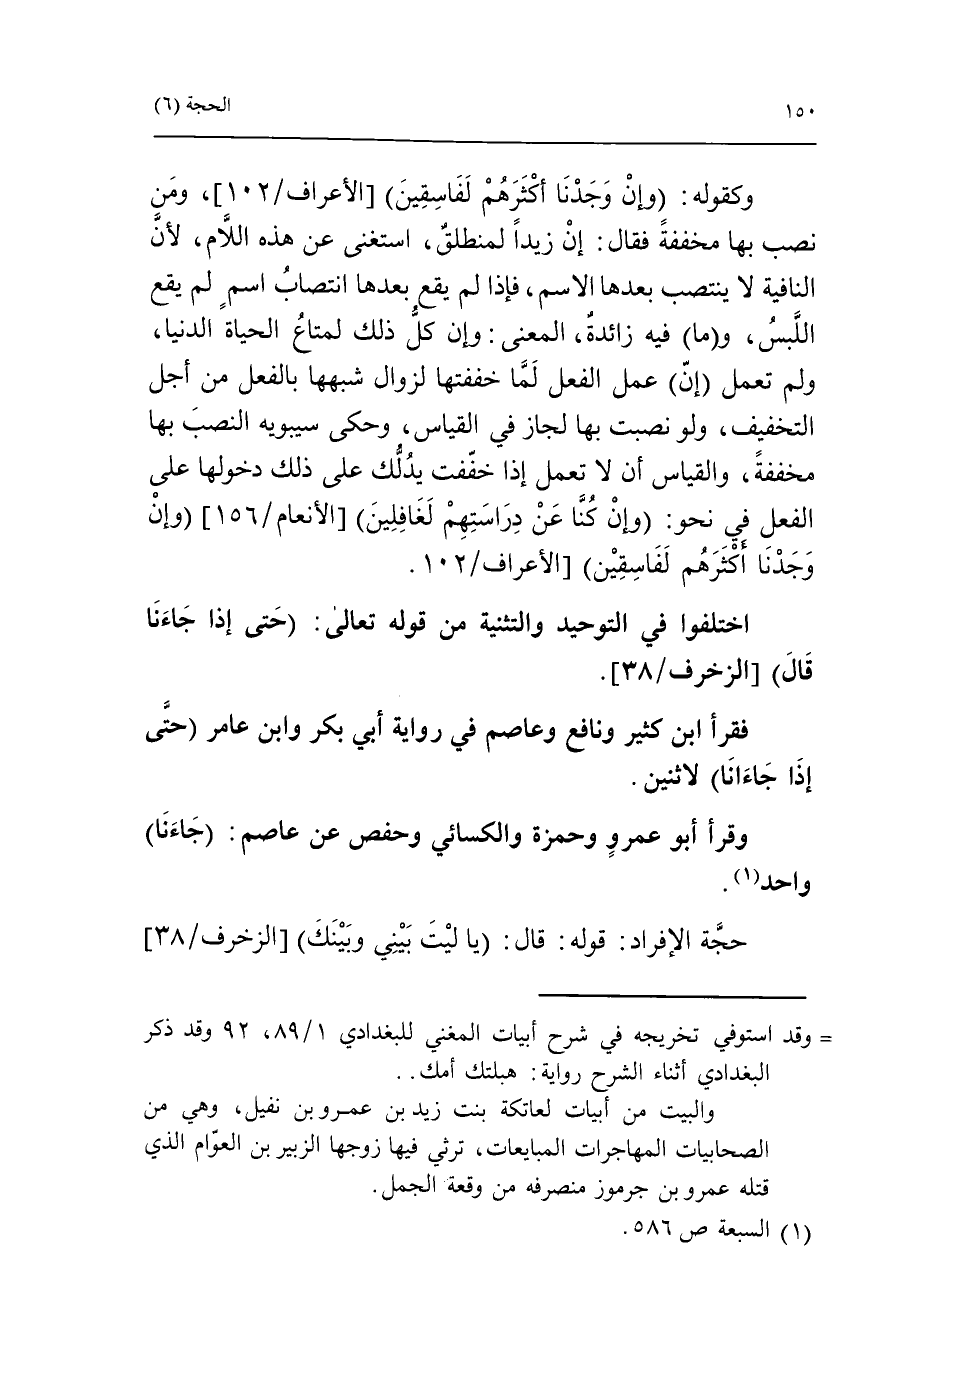 ١٥٠ الحجة (٦)
وكقوله: (وإنْ وَجَدْنَا أكْثَرَهُمْ لَفَاسِقِينَ) [الأعراف/١٠٢]، ومَن
نصب بها مخففةً فقال: إنْ زيداً لمنطلقٌ، استغنى عن هذه اللَّام، لأنَّ
النافية لا ينتصب بعدها الاسم، فإذا لم يقع بعدها انتصابُ اسمٍ لم يقع
اللَّبسُ، و(ما) فيه زائدةٌ، المعنى: وإن كلُّ ذلك لمتاعُ الحياة الدنيا،
ولم تعمل (إنّ) عمل الفعل لَمَّا خففتها لزوال شبهها بالفعل من أجل
التخفيف، ولو نصبت بها لجاز في القياس، وحكى سيبويه النصبَ بها
مخففةً، والقياس أن لا تعمل إذا خفّفت يدُلُّك على ذلك دخولها على
الفعل في نحو: (وإنْ كُنَّا عَنْ دِرَاسَتِهِمْ لَغَافِلِينَ) [الأنعام/١٥٦] (وإنْ
وَجَدْنَا أَكْثَرَهُم لَفَاسِقِيْن) [الأعراف/١٠٢.
اختلفوا في التوحيد والتثنية من قوله تعالىٰ: (حَتى إذا جَاءَنَا
قَالَ) [الزخرف/٣٨].
فقرأ ابن كثير ونافع وعاصم في رواية أبي بكر وابن عامر (حتَّى
إذَا جَاءَانَا) لاثنين.
وقرأ أبو عمروٍ وحمزة والكسائي وحفص عن عاصم: (جَاءَنَا)
واحد(١).
حجَّة الإفراد: قوله: قال: (يا ليْتَ بَيْنِي وبَيْنَكَ) [الزخرف/٣٨]
= وقد استوفي تخريجه في شرح أبيات المغني للبغدادي ٨٩/١، ٩٢ وقد ذكر
البغدادي أثناء الشرح رواية: هبلتك أمك..
والبيت من أبيات لعاتكة بنت زيد بن عمرو بن نفيل، وهي من
الصحابيات المهاجرات المبايعات، ترثي فيها زوجها الزبير بن العوّام الذي
قتله عمرو بن جرموز منصرفه من وقعة الجمل.
(١) السبعة ص ٥٨٦.